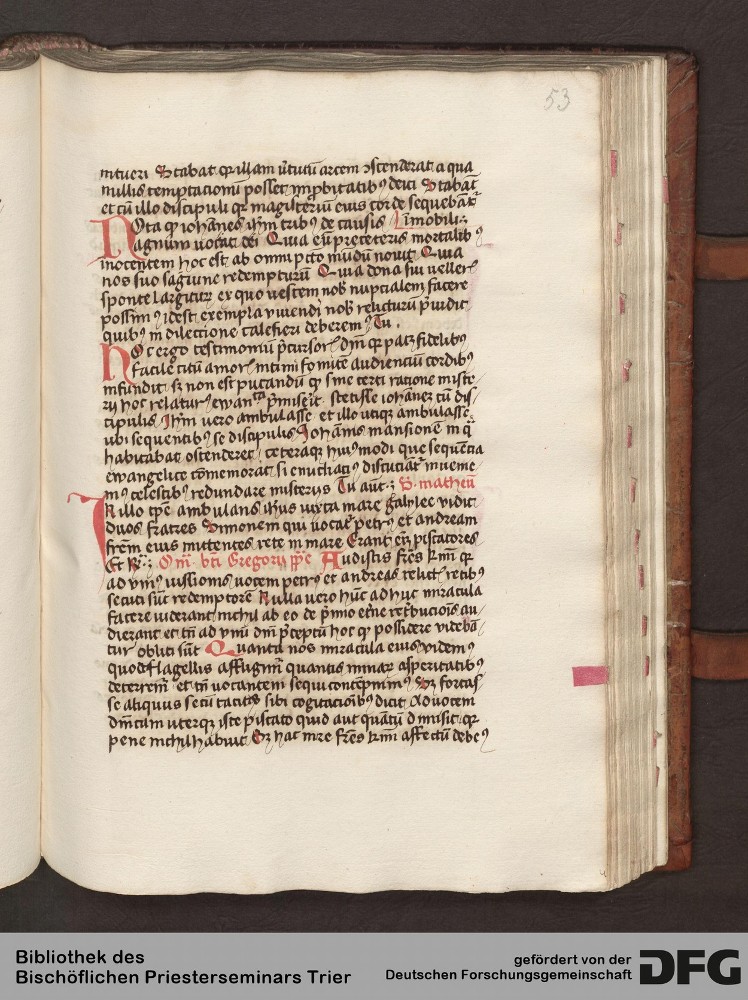 53
intueri Stabat qꝛ illam v̓tutū arcem ↄscenderat a qua
nullis temptacionū posset īprobitatibꝰ deici Stabāt
et cū illo discipuli qꝛ magisteriū eius corde sequebāt̛
Nota ꝙ iohānes ih̄m tribꝰ de causis
agnum uocat dei Quia eū pre ceteris mortalibꝰ
inocentem hoc est ab omni pctō mūdū nouit Quia
nos suo sāgwine redempturū Quia dona sui velleris
sponte largitur ex quo vestem nob̄ nuptialem facere
possimꝰ idest exempla viuendi nob̄ relicturū p̄uidit
quibꝰ in dilectione calefieri deberemꝰ Tu.
Hoc ergo testimoniū p̄cursoris
facile
infundit sꝫ non est putandū ꝙ sine certi racione miste
rij hoc relaturꝰ ewanᵗᵃ p̄miserit stetisse iohānez cū dis
cipulis Ih̄m vero ambulasse et illo utiqꝫ ambulasse
ubi sequentibꝰ se discipulis Iohānis mansionē in q̄
habitabat ostenderet ceteraqꝫ huiꝰmodi que sequēcia
ewangelice cōmemorat si enucliatiꝰ discuciāt̛ inueme
mꝰ celestibꝰ redundare misterijs Tu aūt S. matheū
In illo tp̄e ambulans ih̄us iuxta mare galylee vidit
duos fratres Simonem qui uocat̛ petrꝰ et andream
frēm eius mittentes rete in mare Erant em̄ piscatores
Et R. Om̄. bt̄i Gregorij pp̄e Audistis frēs km̄i qꝛ
ad vniꝰ iussionis uocem petrꝰ et andreas relict̛ retibꝰ
secuti sūt redemptorē Nulla vero hūc adhuc miracula
facere viderant nichil ab eo de p̄mio et̄ne retribucionis au
dierant et tn̄ ad vnū dn̄i p̄ceptū hoc ꝙ possidere videbā
tur obliti sūt Quanta nos miracula eius videmꝰ
quot flagellis affligim̄ quantis minarꝫ asperitatibꝰ
deterremr̄ et tn̄ vocantem sequi contēpnimꝰ Sꝫ fortas
se aliquis secū tacitis sibi cogitacionibꝰ dicit Ad vocem
dn̄icam uterqꝫ iste piscator quid aut quātū dimisit qꝛ
pene nichil habuit Sꝫ hac in re frēs km̄i affectū debeꝰ
Bibliothek des
Bischöflichen Priesterseminars Trier
gefördert von der
Deutschen Forschungsgemeinschaft
DFG